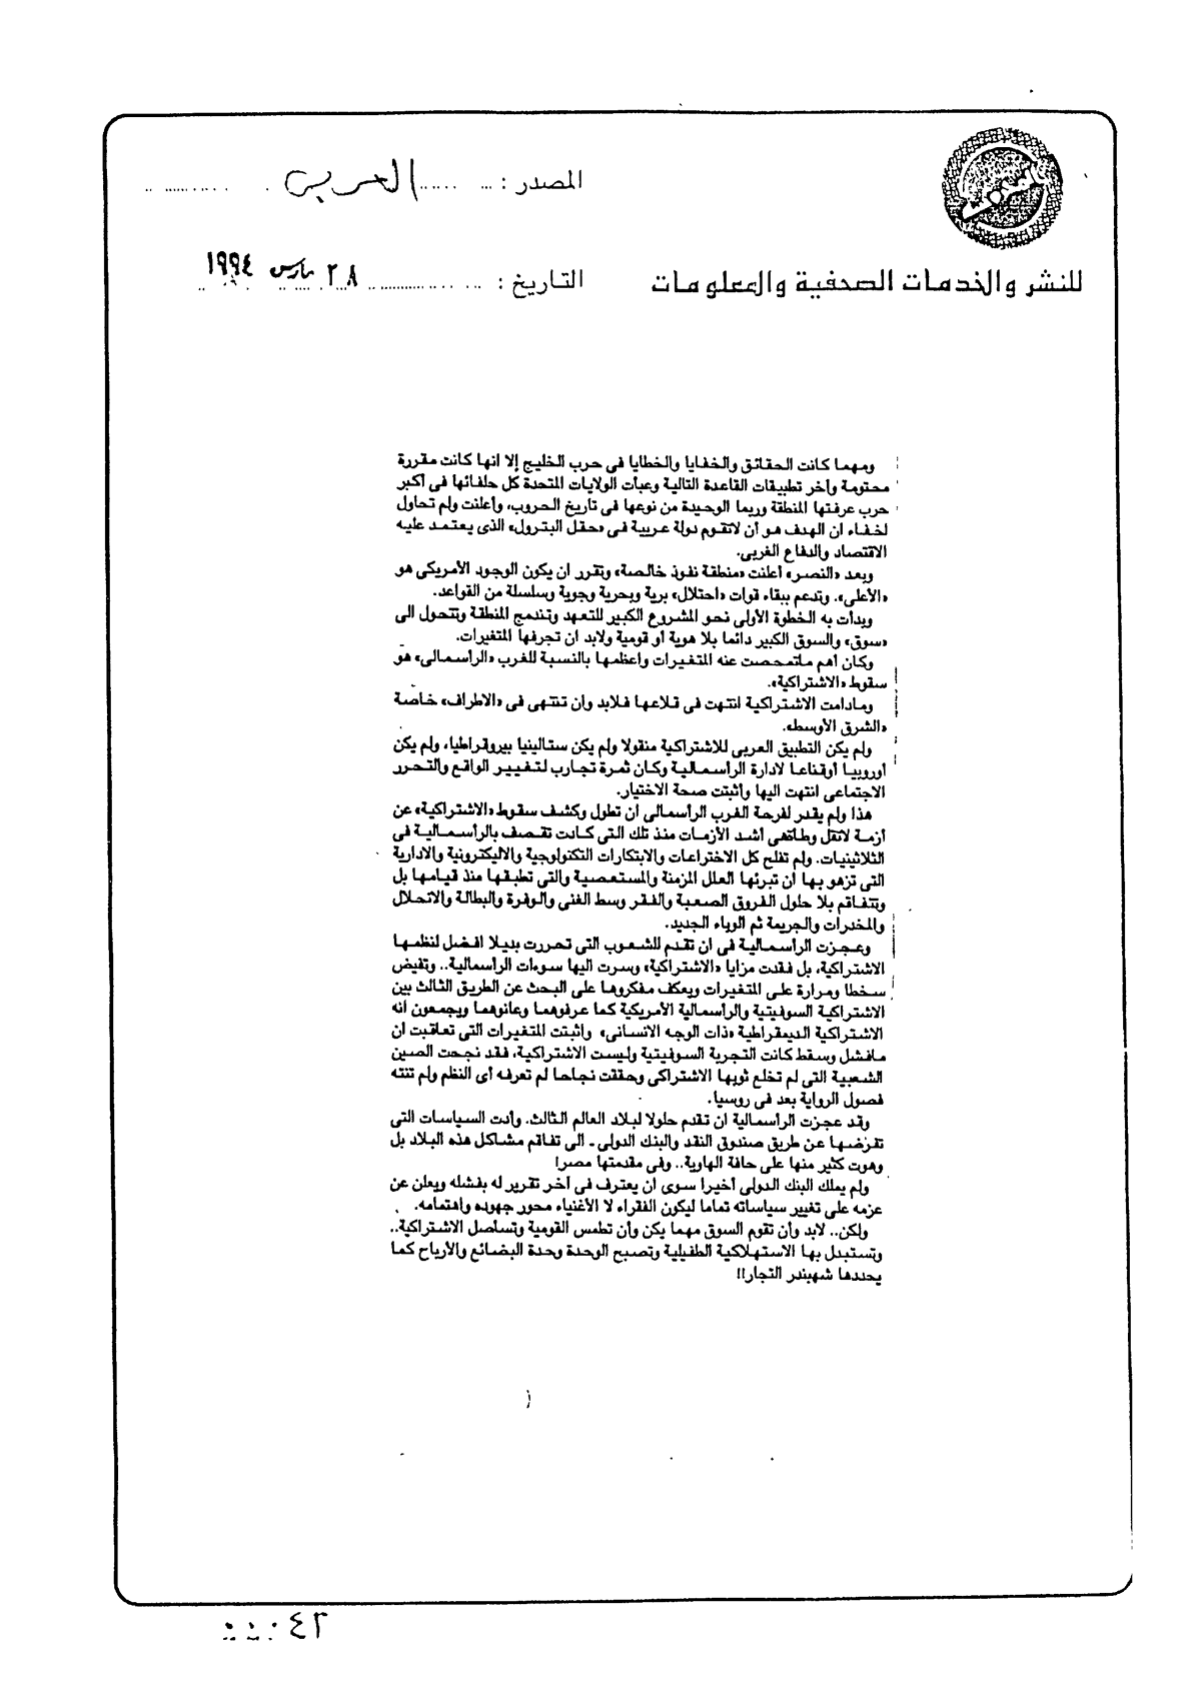 المصدر : العربي
للنشر والخدمات الصحفية والمعلومات
التاريخ : ٢٨ مارس ١٩٩٤
ومهما كانت الحقائق والخفايا والخطايا فى حرب الخليج إلا انها كانت مقررة
محتومة وأخر تطبيقات القاعدة التالية وعبأت الولايات المتحدة كل حلفائها فى أكبر
حرب عرفتها المنطقة وربما الوحيدة من نوعها فى تاريخ الحروب، وأعلنت ولم تحاول
اخفاء ان الهدف هو أن لاتقوم دولة عربية فى «حقل البترول» الذى يعتمد عليه
الاقتصاد والدفاع الغربى.
وبعد «النصر» أعلنت «منطقة نفوذ خالصة» وتقرر ان يكون الوجود الأمريكى هو
«الأعلى». وتدعم ببقاء قوات «احتلال» برية وبحرية وجوية وسلسلة من القواعد.
وبدأت به الخطوة الأولى نحو المشروع الكبير للتعهد وتندمج المنطقة وتتحول الى
«سوق» والسوق الكبير دائما بلا هوية أو قومية ولابد ان تجرفها المتغيرات.
وكان أهم ماتمخضت عنه المتغيرات واعظمها بالنسبة للغرب «الرأسمالى» هو
سقوط «الاشتراكية».
ومادامت الاشتراكية انتهت فى قلاعها فلابد وان تنتهى فى «الاطراف» خاصة
«الشرق الأوسط».
ولم يكن التطبيق العربى للاشتراكية منقولا ولم يكن ستالينيا بيروقراطيا، ولم يكن
أوروبيا أوقناعا لادارة الرأسمالية وكان ثمرة تجارب لتغيير الواقع والتحرر
الاجتماعى انتهت اليها وأثبتت صحة الاختيار.
هذا ولم يقدر لفرحة الغرب الرأسمالى ان تطول وكشف سقوط «الاشتراكية» عن
أزمة لاتقل وطأتهى أشد الأزمات منذ تلك التى كانت تقصف بالرأسمالية فى
الثلاثينيات. ولم تفلح كل الاختراعات والابتكارات التكنولوجية والاليكترونية والادارية
التى تزهو بها ان تبرئها العلل المزمنة والمستعصية والتى تطبقها منذ قيامها بل
وتتفاقم بلا حلول الفروق الصعبة والفقر وسط الغنى والوفرة والبطالة والانحلال
والمخدرات والجريمة ثم الوباء الجديد.
وعجزت الرأسمالية فى ان تقدم للشعوب التى تحررت بديلا افضل لنظمها
الاشتراكية، بل فقدت مزايا «الاشتراكية» وسرت اليها سوءات الرأسمالية.. وتفيض
سخطا ومرارة على المتغيرات ويعكف مفكروها على البحث عن الطريق الثالث بين
الاشتراكية السوفيتية والرأسمالية الأمريكية كما عرفوهما وعانوهما ويجمعون انه
الاشتراكية الديمقراطية «ذات الوجه الانسانى» واثبتت المتغيرات التى تعاقبت ان
مافشل وسقط كانت التجربة السوفيتية وليست الاشتراكية، فقد نجحت الصين
الشعبية التى لم تخلع ثوبها الاشتراكى وحققت نجاحا لم تعرفه أى النظم ولم تنته
فصول الرواية بعد فى روسيا.
وقد عجزت الرأسمالية ان تقدم حلولا لبلاد العالم الثالث. وأدت السياسات التى
تفرضها عن طريق صندوق النقد والبنك الدولى ـ الى تفاقم مشاكل هذه البلاد بل
وهوت كثير منها على حافة الهاوية.. وفى مقدمتها مصر!
ولم يملك البنك الدولى أخيرا سوى ان يعترف فى أخر تقرير له بفشله ويعلن عن
عزمه على تغيير سياساته تماما ليكون الفقراء لا الأغنياء محور جهوده واهتمامه.
ولكن.. لابد وأن تقوم السوق مهما يكن وأن تطمس القومية وتستأصل الاشتراكية..
وتستبدل بها الاستهلاكية الطفيلية وتصبح الوحدة وحدة البضائع والأرباح كما
يحددها شهبندر التجار!!